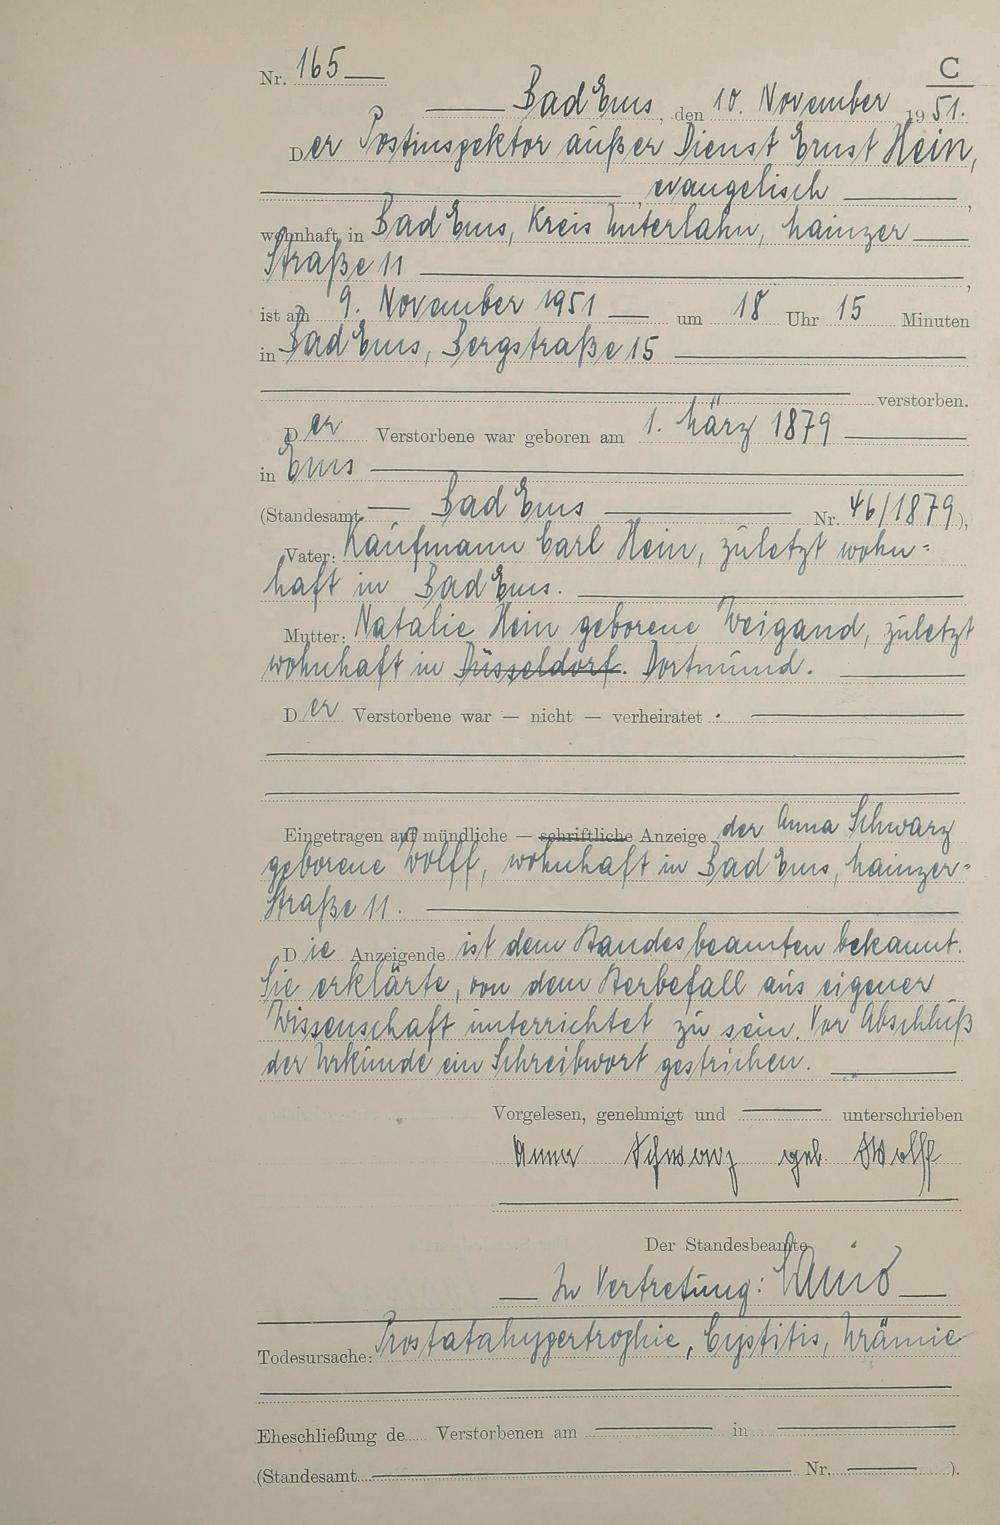 C
Nr. 165
Bad Ems, den 10. November 1951.
Der Postinspektor außer Dienst Ernst Hein,
, evangelisch ,
wohnhaft in Bad Ems, Kreis Unterlahn, Mainzer
Straße 11 ,
ist am 9. November 1951 um 18 Uhr 15 Minuten
in Bad Ems, Bergstraße 15
verstorben.
Der Verstorbene war geboren am 1. März 1879
in Ems
(Standesamt Bad Ems Nr. 46/1879),
Vater: Kaufmann Carl Hein, zuletzt wohn=
haft in Bad Ems.
Mutter: Natalie Hein geborene Weigand, zuletzt
wohnhaft in Düsseldorf. Dortmund.
Der Verstorbene war — nicht — verheiratet .
Eingetragen auf mündliche — schriftliche Anzeige der Anna Schwarz
geborene Wolff, wohnhaft in Bad Ems, Mainzer=
straße 11.
Die Anzeigende ist dem Standesbeamten bekannt.
Sie erklärte, von dem Sterbefall aus eigener
Wissenschaft unterrichtet zu sein. Vor Abschluß
der Urkunde ein Schreibwort gestrichen.
Vorgelesen, genehmigt und unterschrieben
Anna Schwarz geb. Wolff
Der Standesbeamte
In Vertretung:
Todesursache: Prostatahypertrophie, Cystitis, Urämie
Eheschließung de Verstorbenen am in
(Standesamt Nr. ).